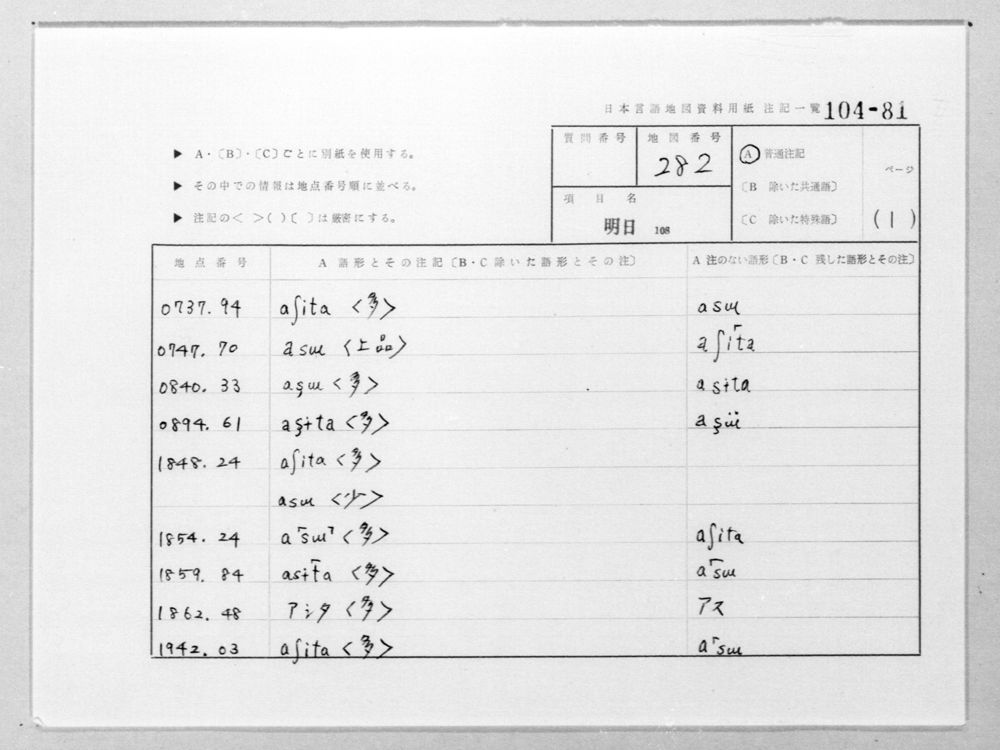 日本言語地図資料用紙 注記一覧 104-81
▶ A・〔B〕・〔C〕ごとに別紙を使用する。
▶ その中での情報は地点番号順に並べる。
▶ 注記の< >( )〔 〕は厳密にする。
質問番号 地図番号 282
項目名 明日 108
Ⓐ 普通注記
〔B 除いた共通語〕
〔C 除いた特殊語〕
ページ (1)
地点番号 A 語形とその注記〔B・C 除いた語形とその注〕 A 注のない語形〔B・C 残した語形とその注〕
0737. 94 aʃita <多> asɯ
0747. 70 asɯ <上品> aʃi⎾ta
0840. 33 aşɯ <多> asɨta
0894. 61 aşɨta <多> aşɯ̈
1848. 24 aʃita <多>
asɯ <少>
1854. 24 a⎾sɯ⏋ <多> aʃita
1859. 84 asɨ⎾ta <多> a⎾sɯ
1862. 48 アシタ <多> アス
1942. 03 aʃita <多> a⎾sɯ